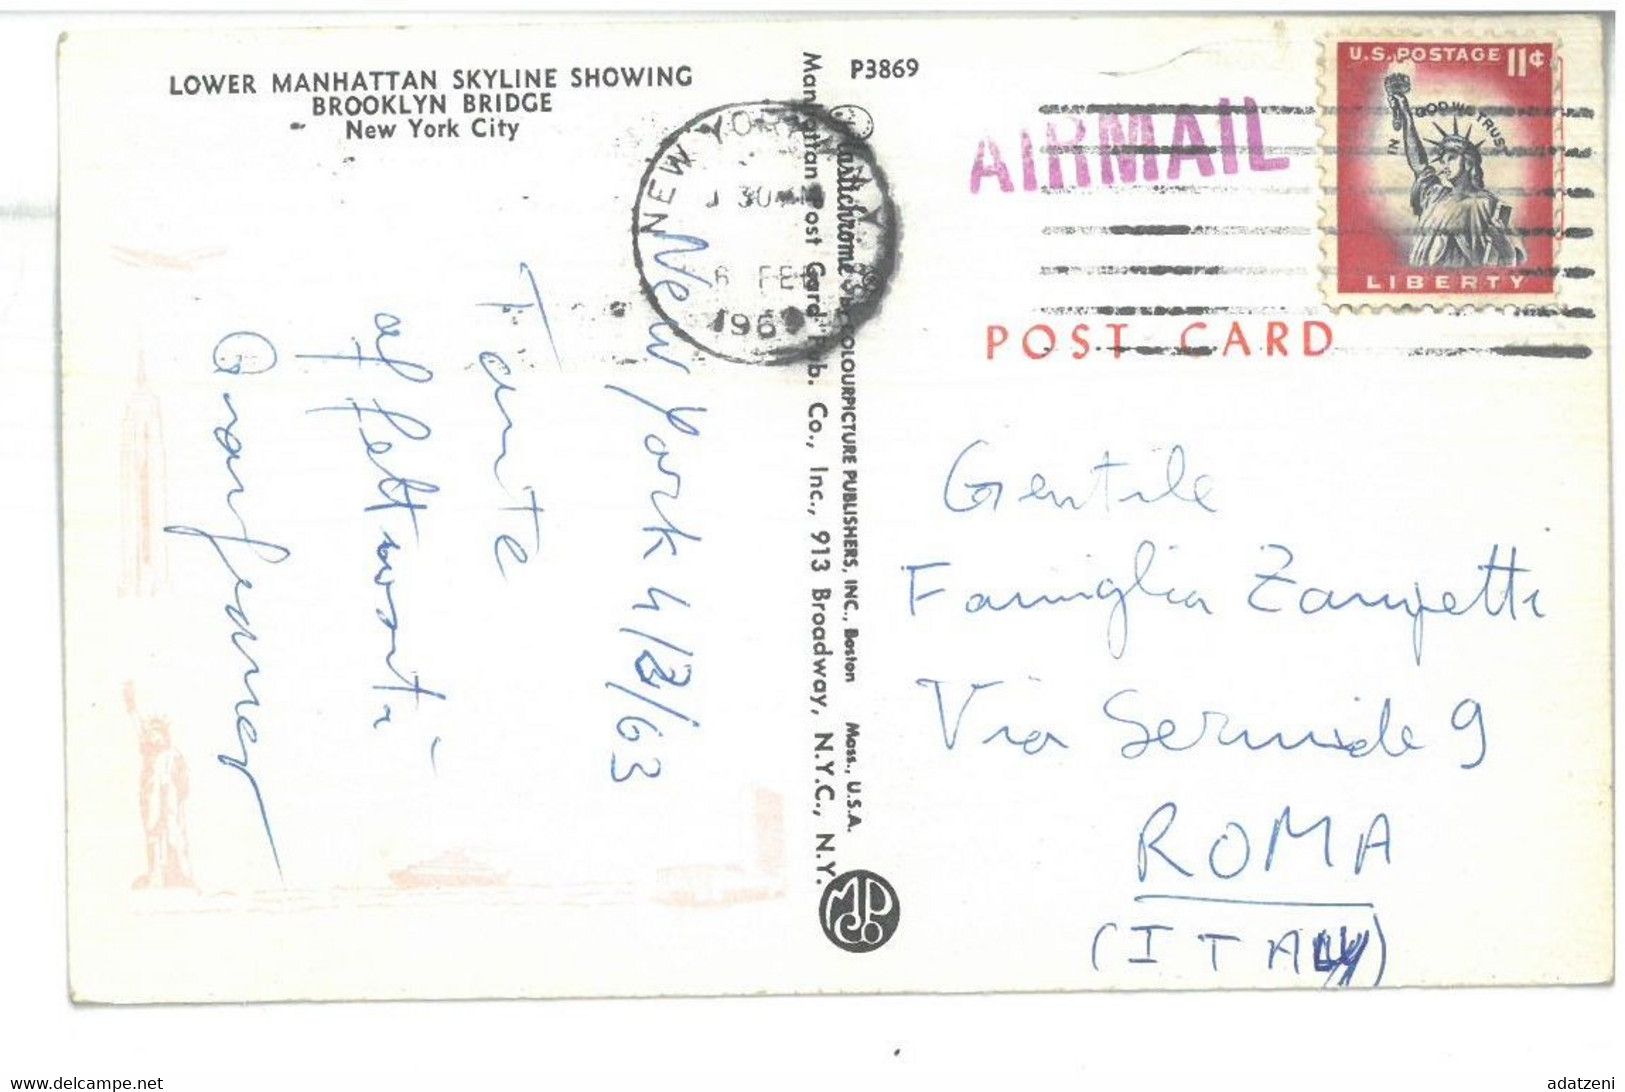 LOWER MANHATTAN SKYLINE SHOWING
BROOKLYN BRIDGE
New York City
New York 4/2/63
Tante
affettuosità
P3869
Manhattan Post Card Pub. Co., Inc., 913 Broadway, N.Y.C., N.Y.
Plastichrome COLOURPICTURE PUBLISHERS, INC., Boston Mass., U.S.A.
MPCo
NEW YORK, N.Y.
30
6 FEB
1963
AIRMAIL
U.S. POSTAGE 11¢
IN GOD WE TRUST
LIBERTY
POST CARD
Gentile
Famiglia Zampetti
Via Sermide 9
ROMA
(ITALY)
adatzeni
www.delcampe.net